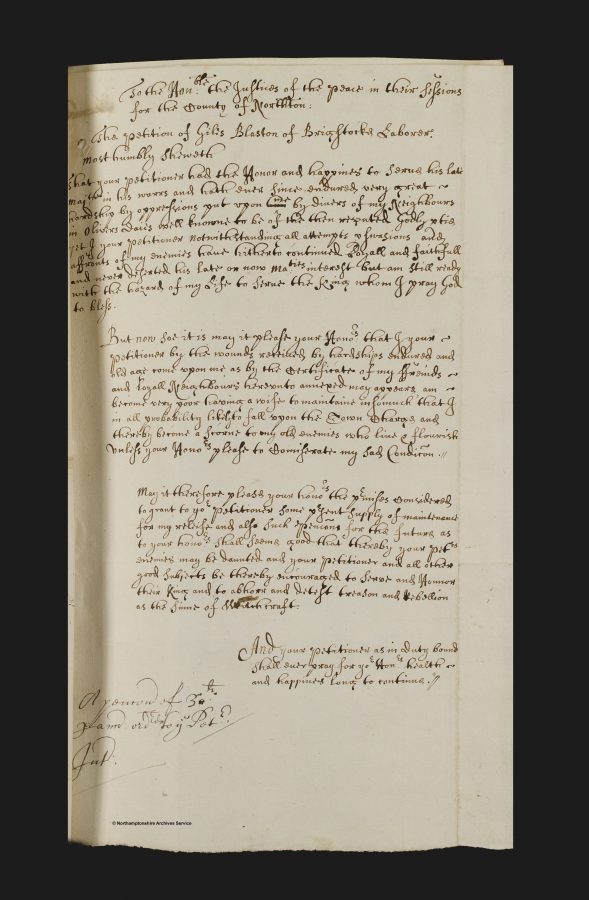 To the Hon:ble the Justices of the Peace in their Sessions
for the County of Norhton:
The Petition of Giles Blaston of Brighstocke Laborer:
Most humbly Sheweth
That your Petitioner had the Honor and happines to Serve his late
Matie in his warrs and hath ever since endured very great
hardship by oppressions put upon by divers of my Neighbours
in Olivers daies well knowne to be of the then reputed Godly ptie
yet I your Petitioner notwithstanding all attempts and
affronts of my enemies have hitherto continued Loyall and faithfull
and never deserted his late or now Maties interest but am still ready
with the hazard of my Life to Serve the King whom I pray God
to bless.
But now soe it is may it please your Honors that I your
Petitioner by the wounds received by hardships endured and
old age come upon me as by the Certificate of my ffreinds
and Loyall Neighbours hereunto annexed may appeare am
become very poor having a wife to maintaine insomuch that I
in all probability like to fall upon the Town Charge and
thereby become a scorne to my old enemies who live & flourish
Unless your Honors please to Comiserate my sad Condicon.//
May it therefore please your honors the pmises Considered
to grant to yor Petitioner some psent supply of maintenance
for my releife and also such Pencon for the future as
to your honors shall seeme good that thereby your Petrs
enemies may be daunted and your Petitioner and all other
good Subjects be thereby encouraged to serve and Honnor
their King and to abhorr and detest treason and Rebellion
as the sinne of Witchcraft:
And your Petitioner as in duty bound
shall ever pray for yor Honors health
and happines long to continue.//
A pencon of
ordred to ye Petr.
© Northamptonshire Archives Service